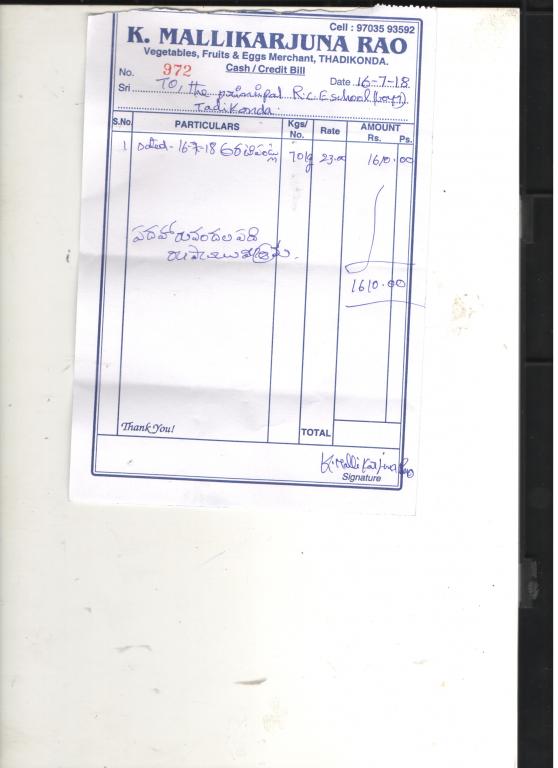 Cell : 97035 93592
K. MALLIKARJUNA RAO
Vegetables, Fruits & Eggs Merchant, THADIKONDA.
Cash / Credit Bill
No. 972 Date 16-7-18
Sri To, the principal R.C.E school (boys)
Tadikonda.
S.No. PARTICULARS Kgs/ No. Rate AMOUNT Rs. Ps.
1 Dated - 16-7-18 అరటిపండ్లు 70kg 23.00 1610.00
పదహారువందలపది
రూపాయలు మాత్రమే.
1610.00
Thank You!
TOTAL
K. Mallikarjuna Rao
Signature